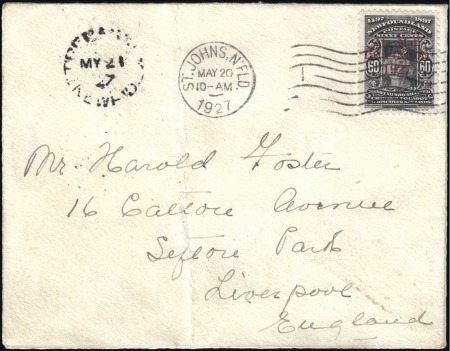 1497 1897
NEWFOUNDLAND
POSTAGE
SIXTY CENTS
60 60
MY 21
27
ST. JOHN'S, N'FLD.
MAY 20
10-AM
1927
Mr Harold Foster
16 Calton Avenue
Sefton Park
Liverpool
England